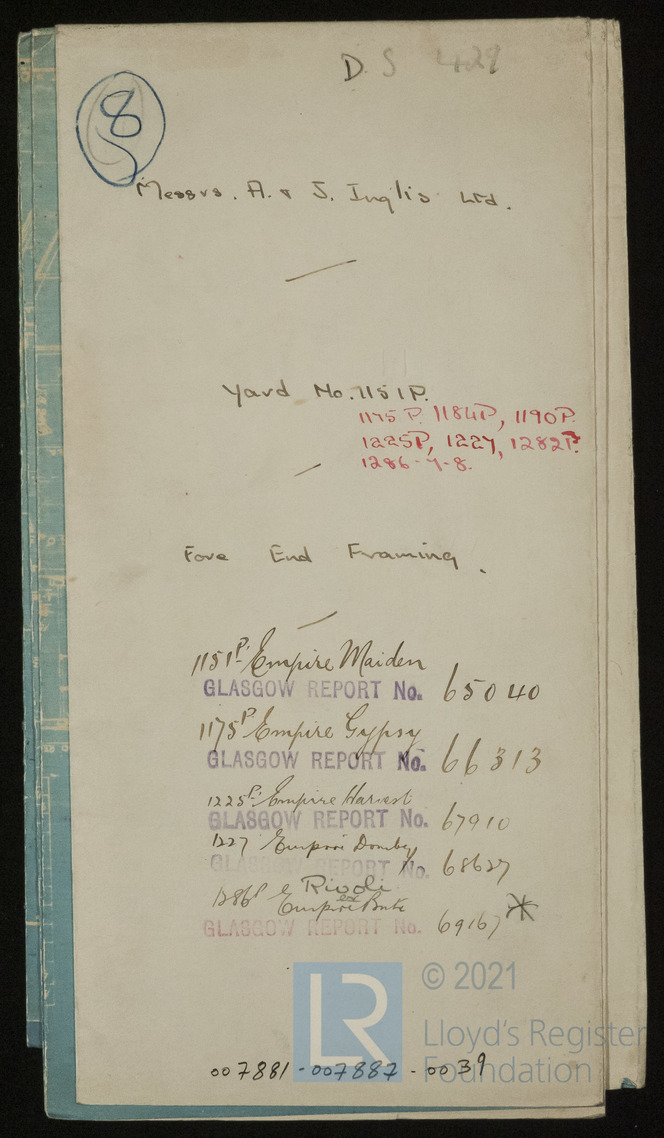 D.S 429
8
Messrs. A. & J. Inglis Ltd.
Yard No. 1151P.
1175 P. 1184P, 1190P.
1225P, 1227, 1282P.
1286-7-8.
Fore End Framing.
1151P. Empire Maiden
GLASGOW REPORT No. 65040
1175P Empire Gypsy
GLASGOW REPORT No. 66313
1225P. Empire Harvest
GLASGOW REPORT No. 67910
1227 Empire Domby
GLASGOW REPORT No. 68627
1286P Rivoli
ex Empire Bute
GLASGOW REPORT No. 69167
© 2021
LR
Lloyd's Register
Foundation
007881-007887-0039